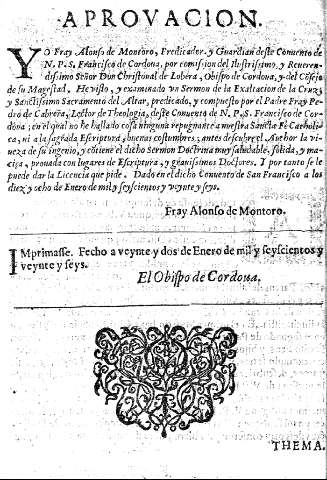 APROVACION.
YO Fray Alonso de Montoro, Predicador, y Guardian deste Convento de
N. P. S. Francisco de Cordova, por comission del Ilustrissimo, y Reveren-
dissimo Señor Don Christoual de Lobera, Obispo de Cordoua, y del Cōsejo
de su Magestad. He visto, y examinado un Sermon de la Exaltacion de la Cruz, y
Sanctissimo Sacramento del Altar, predicado, y compuesto por el Padre Fray Pe-
dro de Cabreña, Lector de Theologia, deste Convento de N. P. S. Francisco de Cor-
dova; en el qual no he hallado cosa ninguna repugnante a nuestra Sancta Fè Catholi-
ca, ni a la sagrada Escriptura, buenas costumbres, antes descubre el Author la vi-
veza de su ingenio, y cōtiene el dicho Sermon Doctrina muy saludable, solida, y ma-
ciça, provada con lugares de Escriptura, y gravissimos Doctores. Y por tanto se le
puede dar la Licencia que pide. Dado en el dicho Convento de San Francisco a los
diez y ocho de Enero de mil y seyscientos y veynte y seys.
Fray Alonso de Montoro.
IMprimasse. Fecho a veynte y dos de Enero de mil y seyscientos y
veynte y seys.
El Obispo de Cordova.
THEMA.